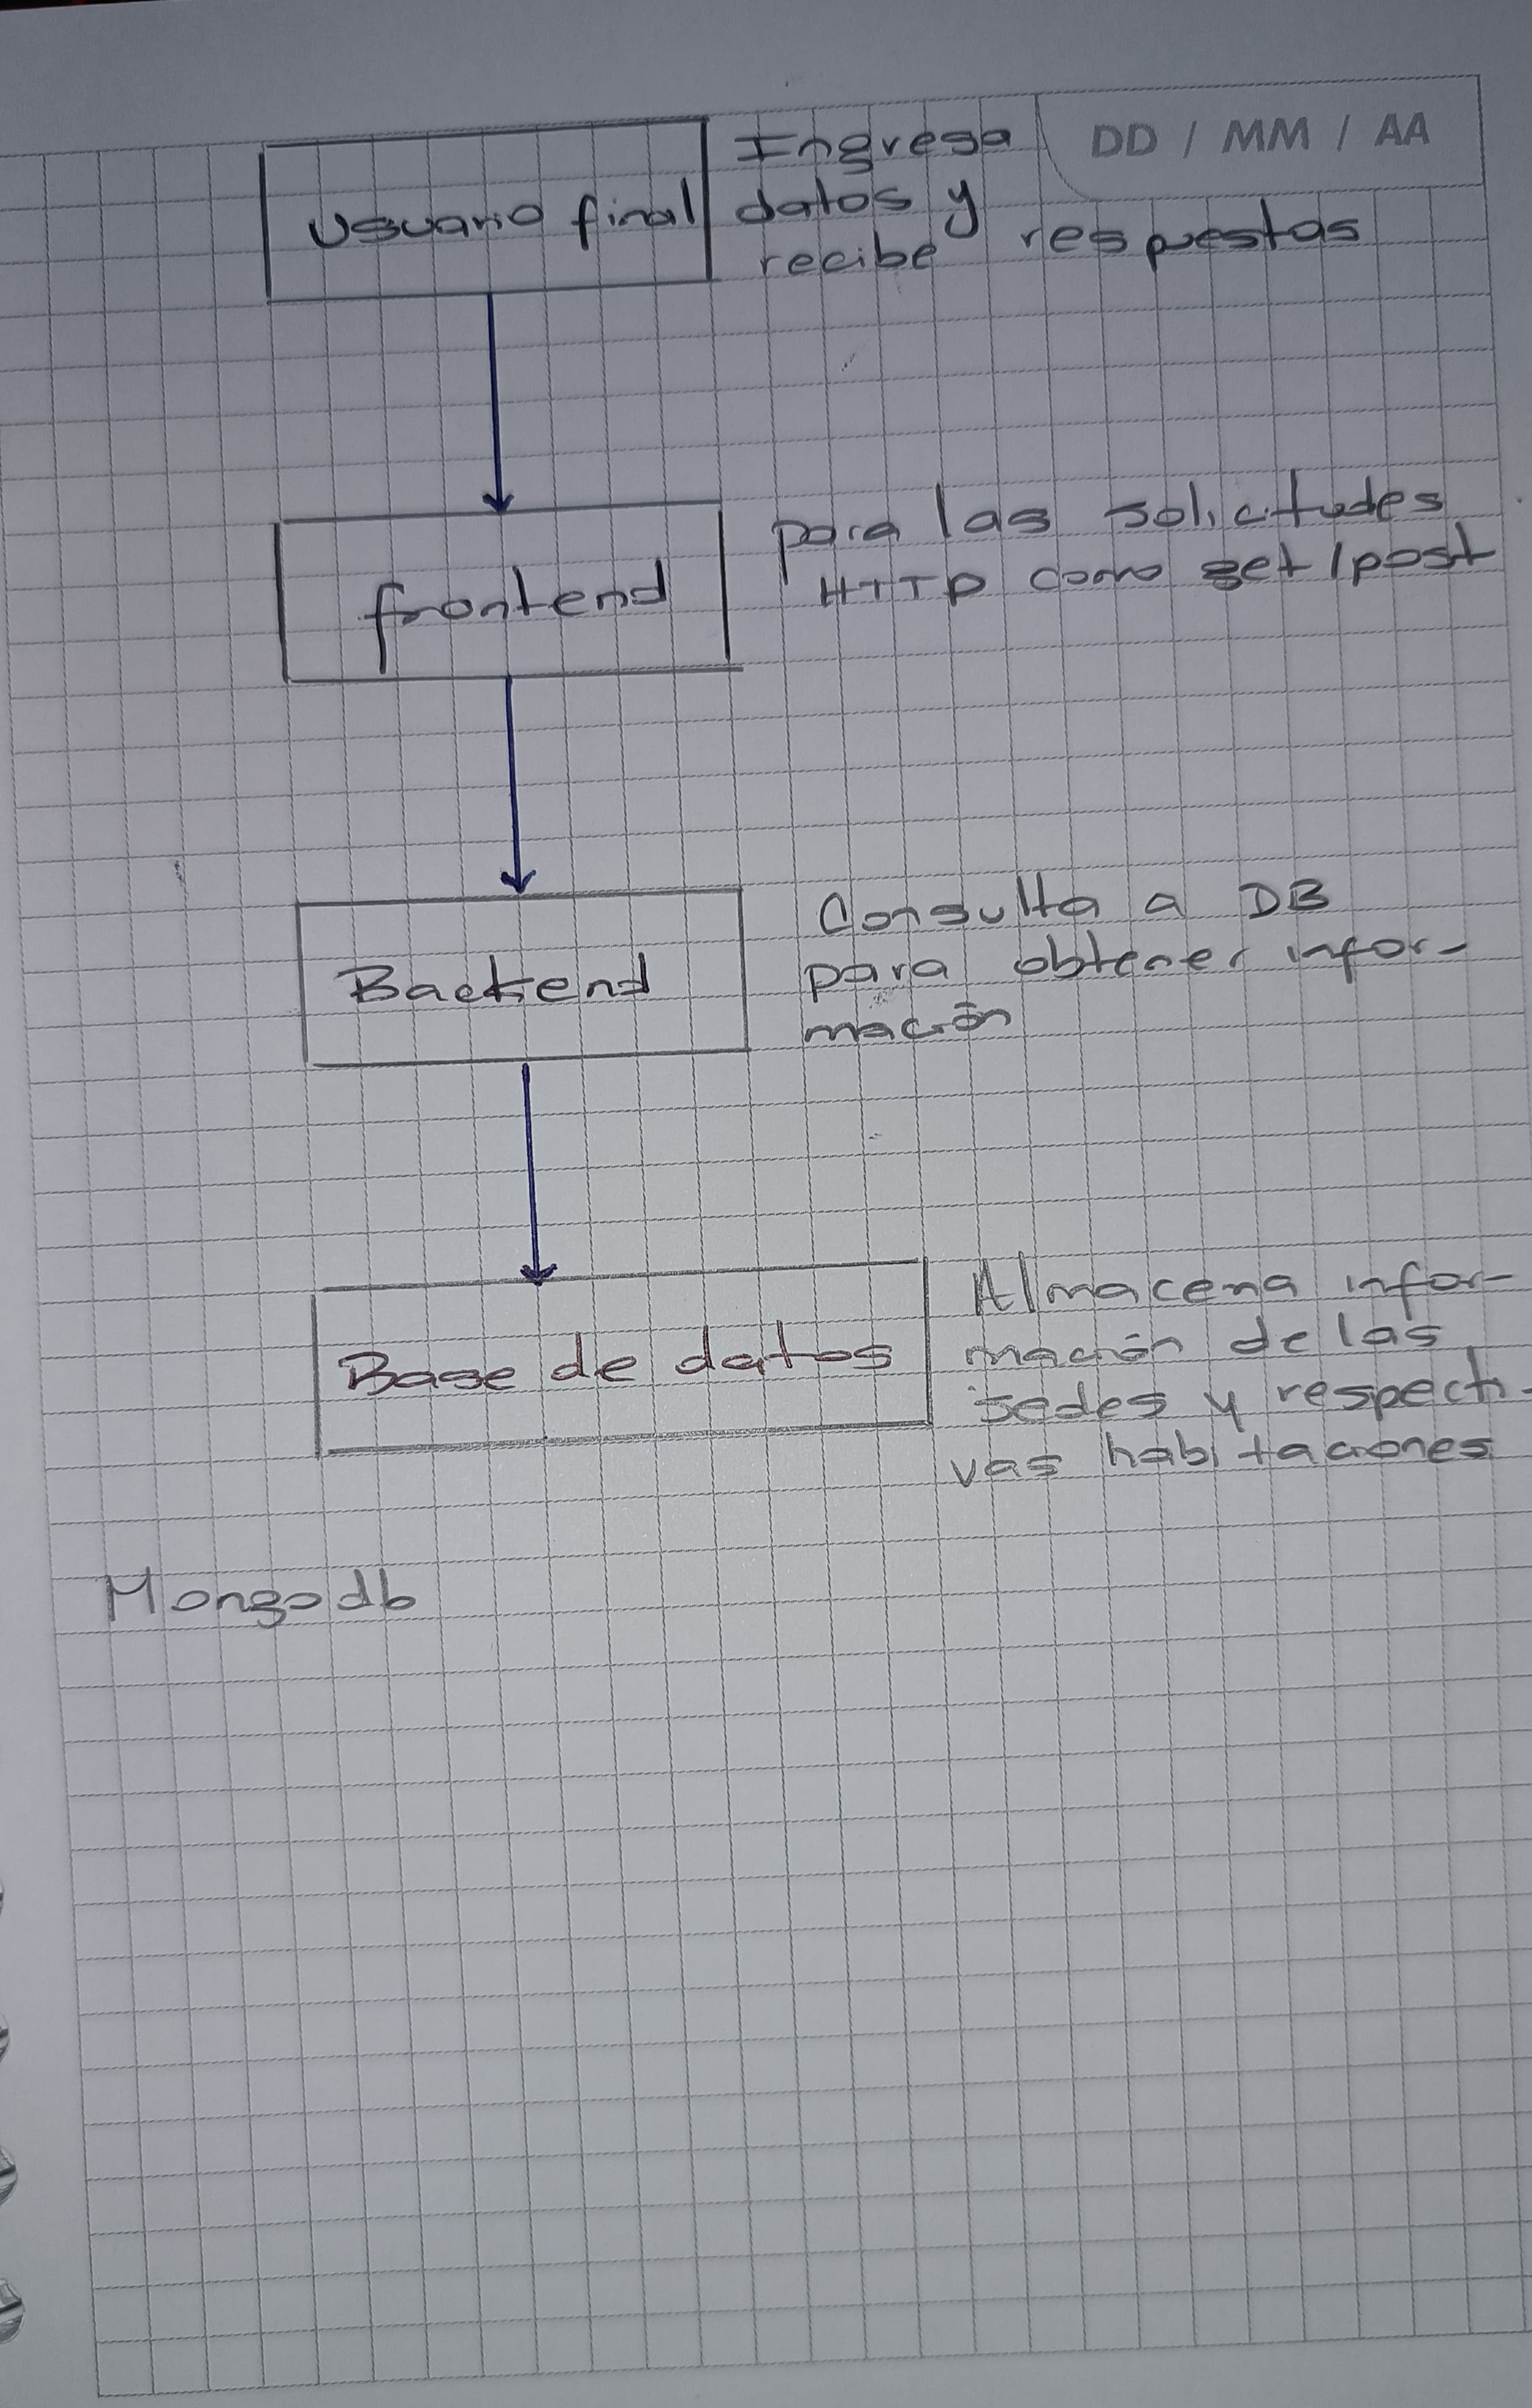 DD / MM / AA
Usuario final
Ingresa
datos y
recibe respuestas
frontend
para las solicitudes
HTTP como get/post
Backend
Consulta a DB
para obtener infor-
mación
Base de datos
Almacena infor-
mación de las
sedes y respecti-
vas habitaciones
Mongodb